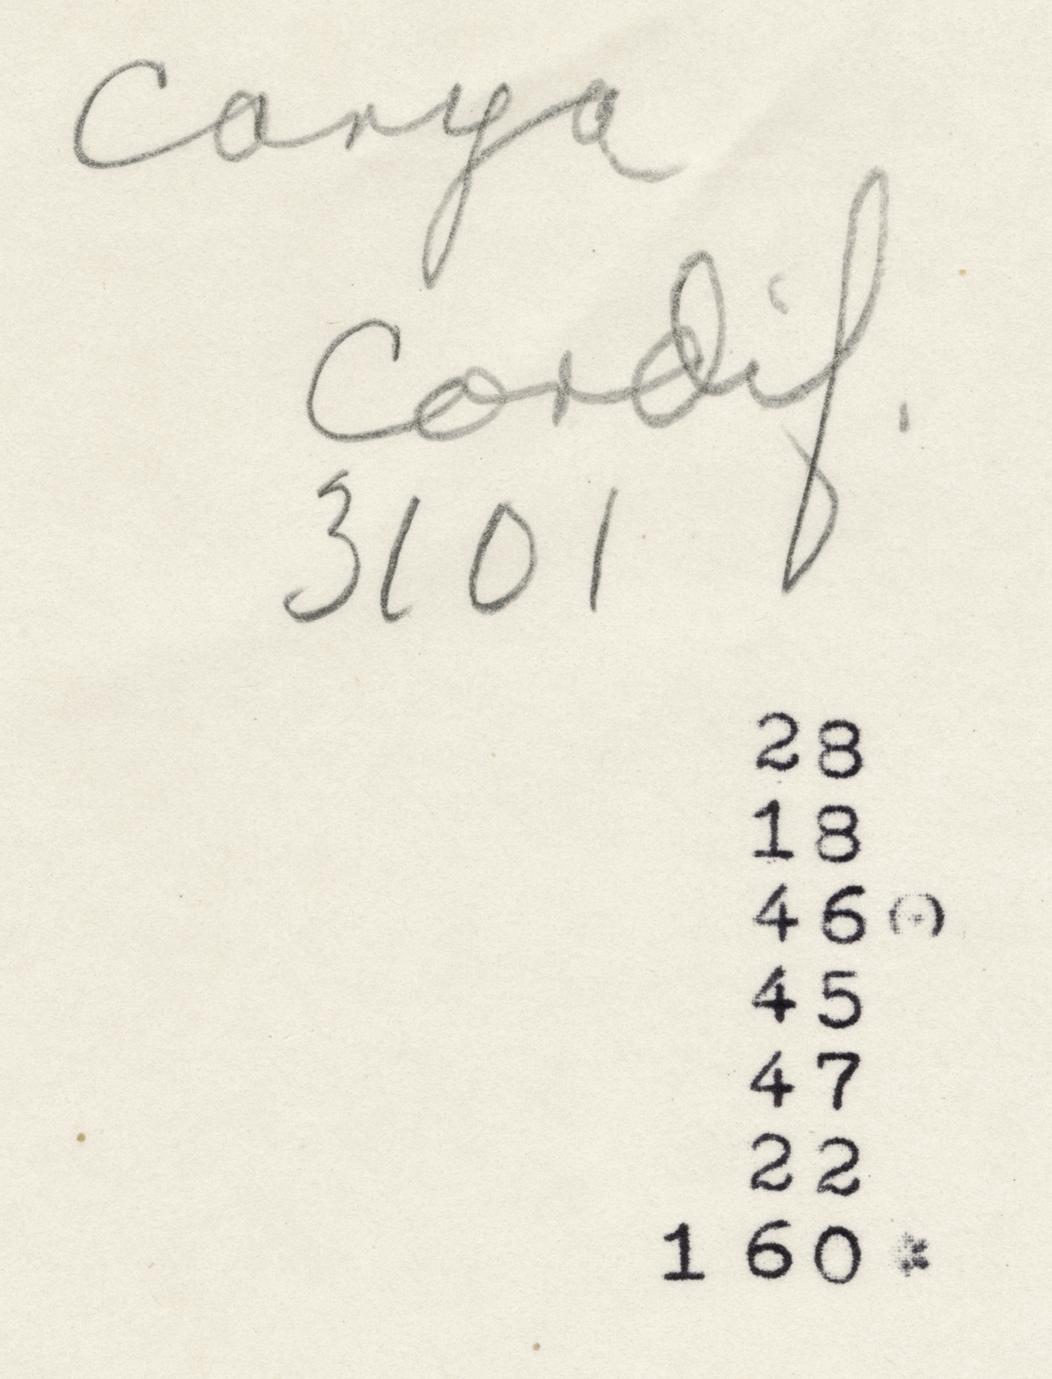 Carya
Cordif.
3101
28
18
46 (·)
45
47
22
160 *